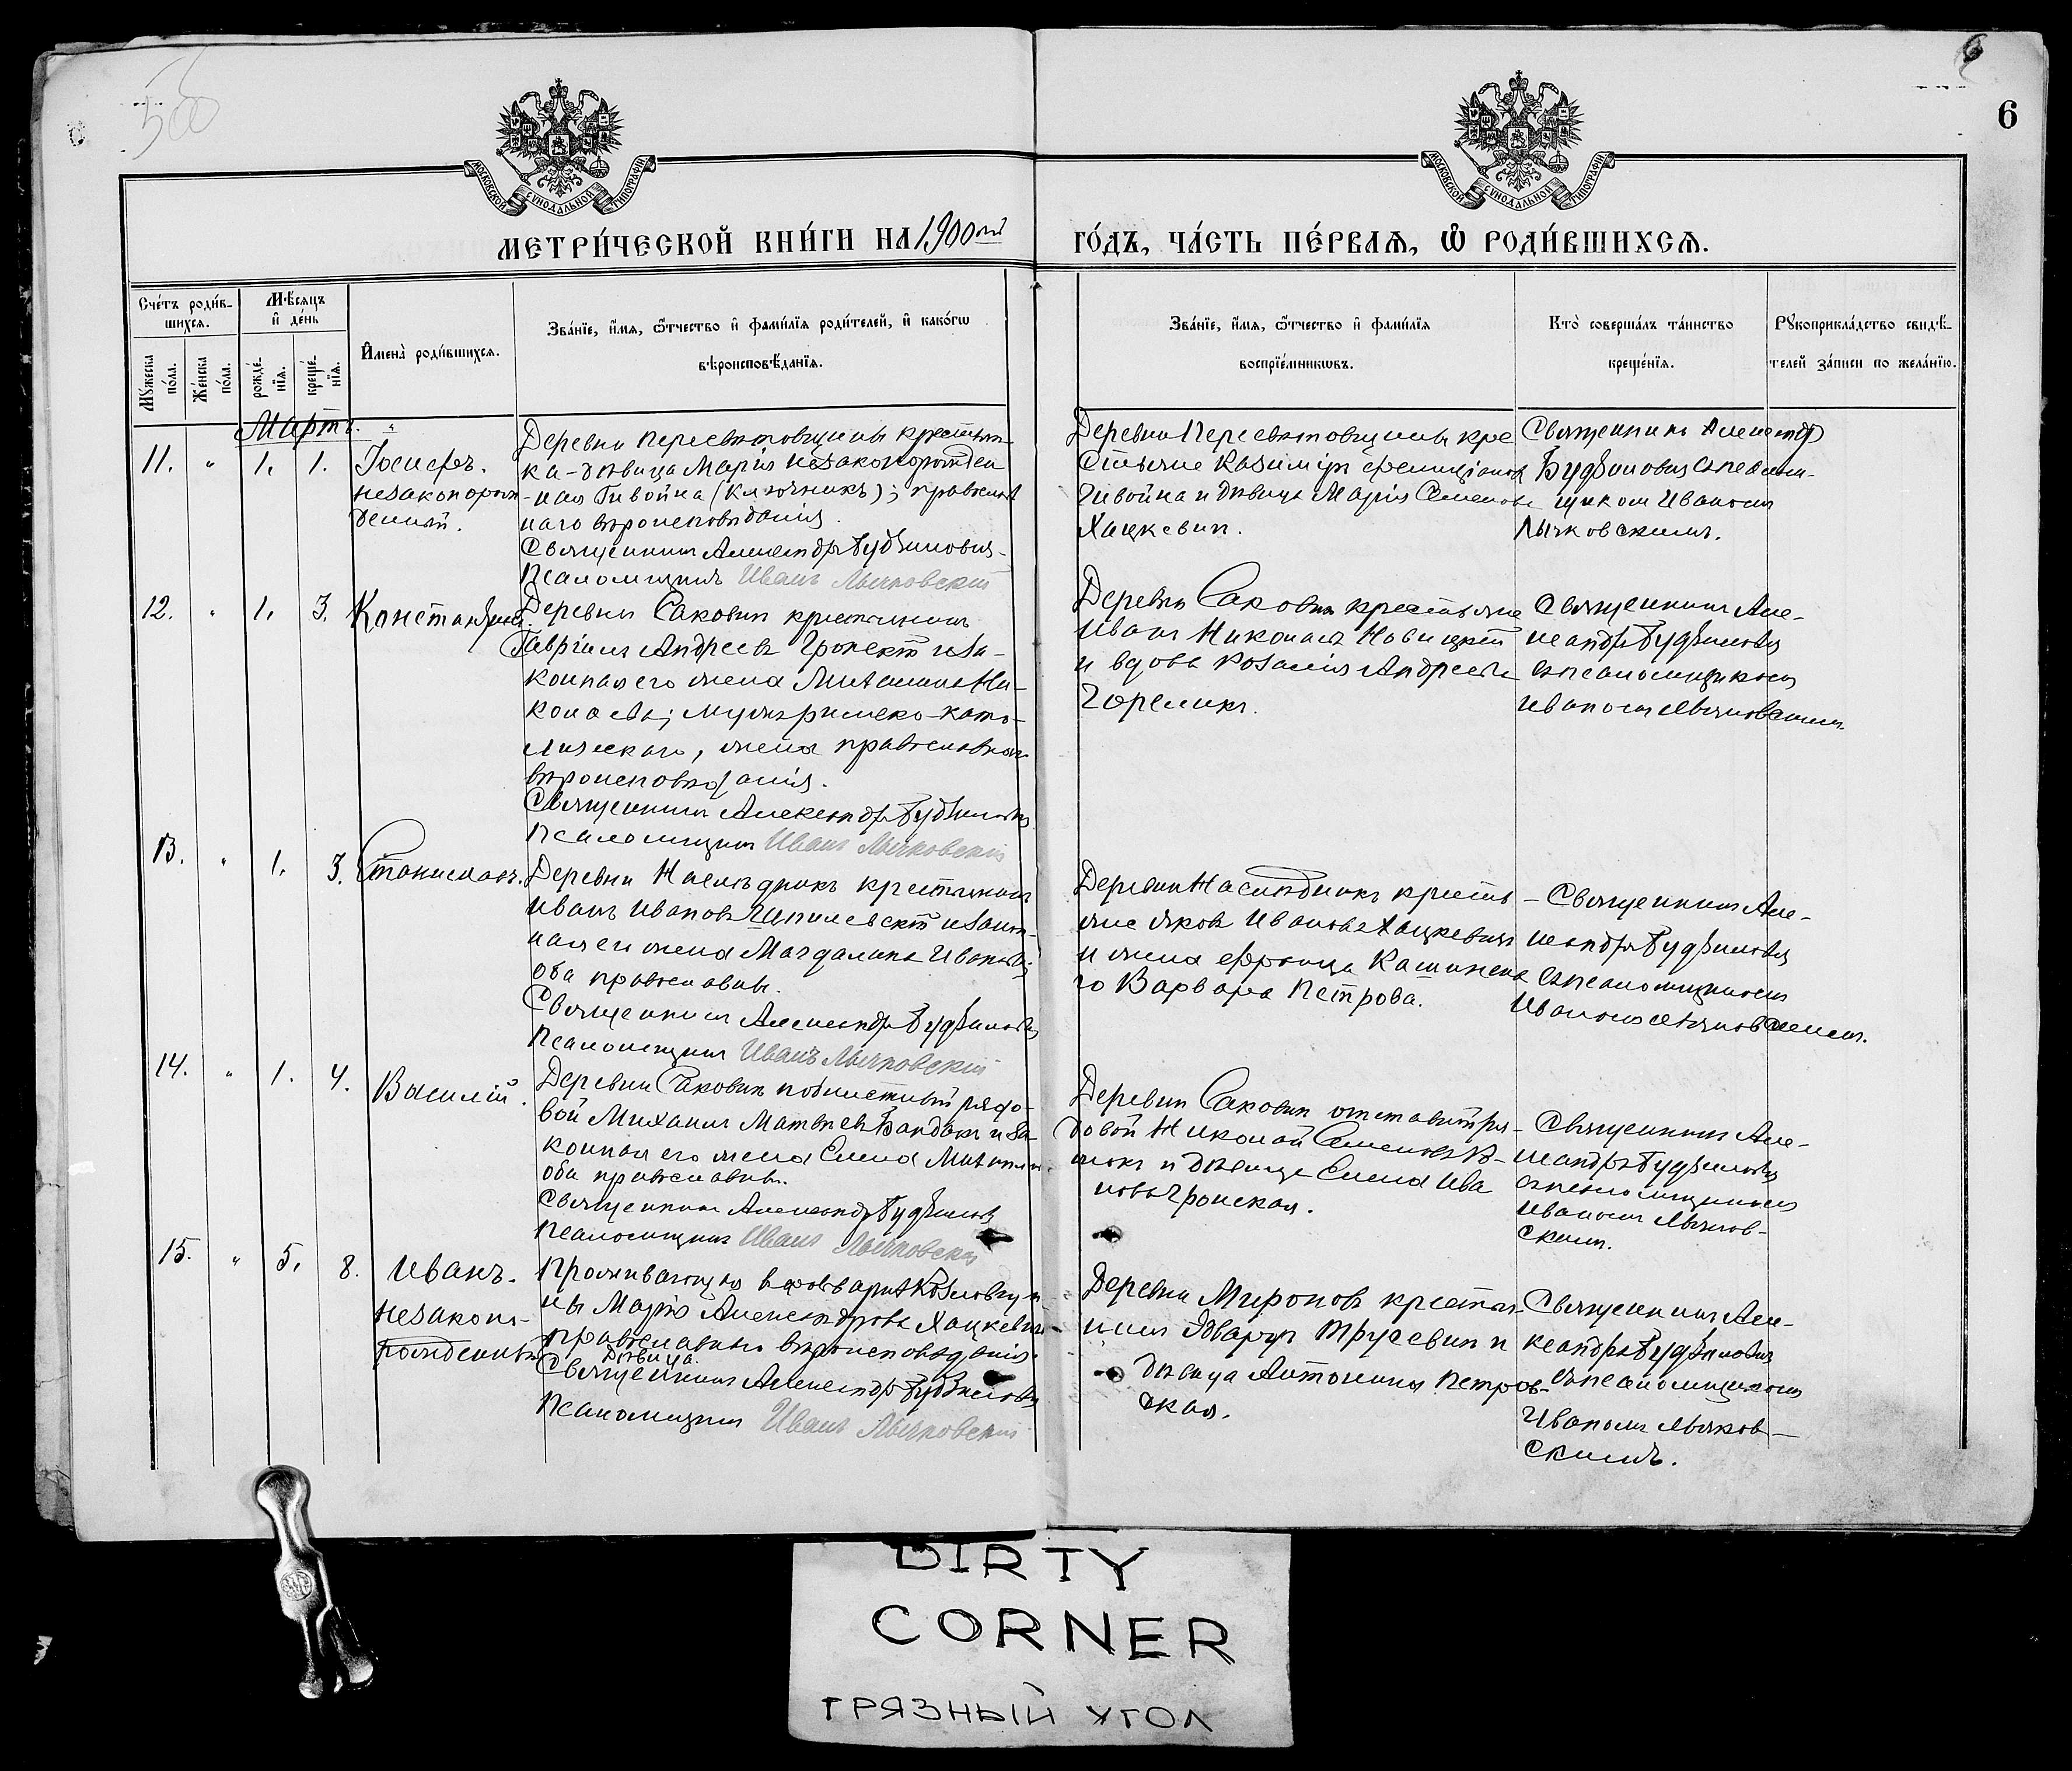 6
6
МОСКОВСКОЙ СѴНОДАЛЬНОЙ ТИПОГРАФІИ
МОСКОВСКОЙ СѴНОДАЛЬНОЙ ТИПОГРАФІИ
МЕТРИ́ЧЕСКОЙ КНИ́ГИ НА 1900ый
ГО́ДЪ, ЧА́СТЬ ПЕ́РВАѦ, Ѽ РОДИ́ВШИХСѦ.
Сче́тъ роди́в-
шихсѧ.
Мꙋ́жеска по́ла.
Же́нска по́ла.
Мѣ́сяцъ
и҆ де́нь
рожде́-
нїѧ.
креще́-
нїѧ.
И҆мена̀ роди́вшихсѧ.
Зва́нїе, и҆́мѧ, ѻ҆́тчество и҆ фами́лїѧ роди́телей, и҆ како́гѡ
вѣроисповѣ́данїѧ.
Зва́нїе, и҆́мѧ, ѻ҆́тчество и҆ фами́лїѧ
воспрїе́мникѡвъ.
Кто̀ соверша́лъ та́инство
креще́нїѧ.
Рꙋкоприкла́дство свидѣ́-
телей за́писи по жела́нїю.
Мартъ.
11. " 1. 1.
Іосифъ.
незаконорож
денный.
Деревни Пересвятовщины крестьян-
ка-дѣвица Марія незаконорожден
-ная Гивойна (Ключникъ); православ
наго вѣроисповѣданія.
Священникъ Александръ Будзиловичъ
Псаломщикъ Иванъ Лычковскій
Деревни Пересвятовщины кре
стьяне Казиміръ Фелиціановъ
Гивойна и дѣвица Марія Семенова
Хацкевич.
Священникъ Александръ
Будзиловичъ съ псалом-
щиком Иваномъ
Лычковскимъ.
12. " 1. 3.
Константинъ.
Деревни Саковичъ крестьянинъ
Гавріилъ Андреевъ Гронскій и за-
конная его жена Михалина Ни-
колаева; мужъ римско-като-
лическаго, жена православнаго
вѣроисповѣданія.
Священникъ Александръ Будзиловичъ
Псаломщикъ Иванъ Лычковскій
Деревни Саковичъ крестьяне
Иванъ Николаевъ Новицкій
и вдова Розалія Андреева
Священникъ Але-
ксандръ Будзиловичъ
съ псаломщикомъ
Иваномъ Лычковскимъ.
13. " 1. 3.
Станиславъ.
Деревни Наслѣдникъ крестьянинъ
Иванъ Ивановъ и закон-
ная его жена Магдалина Иванова;
оба православны.
Священникъ Александръ Будзиловичъ
Псаломщикъ Иванъ Лычковскій
Деревни Наслѣдникъ кресть-
яне Яковъ Ивановъ Хацкевичъ
и жена Франца
го Варвара Петрова.
Священникъ Але-
ксандръ Будзиловичъ
съ псаломщикомъ
Иваномъ Лычковскимъ.
14. " 1. 4.
Василій.
Деревни Саковичъ рядо-
вой Михаилъ Матвѣевъ Бандакъ и за-
конная его жена Елена
оба православны.
Священникъ Александръ Будзиловичъ
Псаломщикъ Иванъ Лычковскій
Деревни Саковичъ отставной ря-
довой Николай Семеновъ
и дѣвица Елена Ива
нова Гронская.
Священникъ Але-
ксандръ Будзиловичъ
съ псаломщикомъ
Иваномъ Лычков-
скимъ.
15. " 5. 8.
Иванъ.
незаконо-
рожденный
Проживающая въ фольваркѣ Козловщи-
ны Марія Александрова Хацкевичъ
православнаго вѣроисповѣданія.
дѣвица.
Священникъ Александръ Будзиловичъ
Псаломщикъ Иванъ Лычковскій
Деревни Миронов крестья-
нинъ Эдвардъ Трусевич и
дѣвица Антонина Петров-
ская.
Священникъ Але-
ксандръ Будзиловичъ
съ псаломщикомъ
Иваномъ Лычков-
скимъ.
DIRTY
CORNER
ГРЯЗНЫЙ УГОЛ